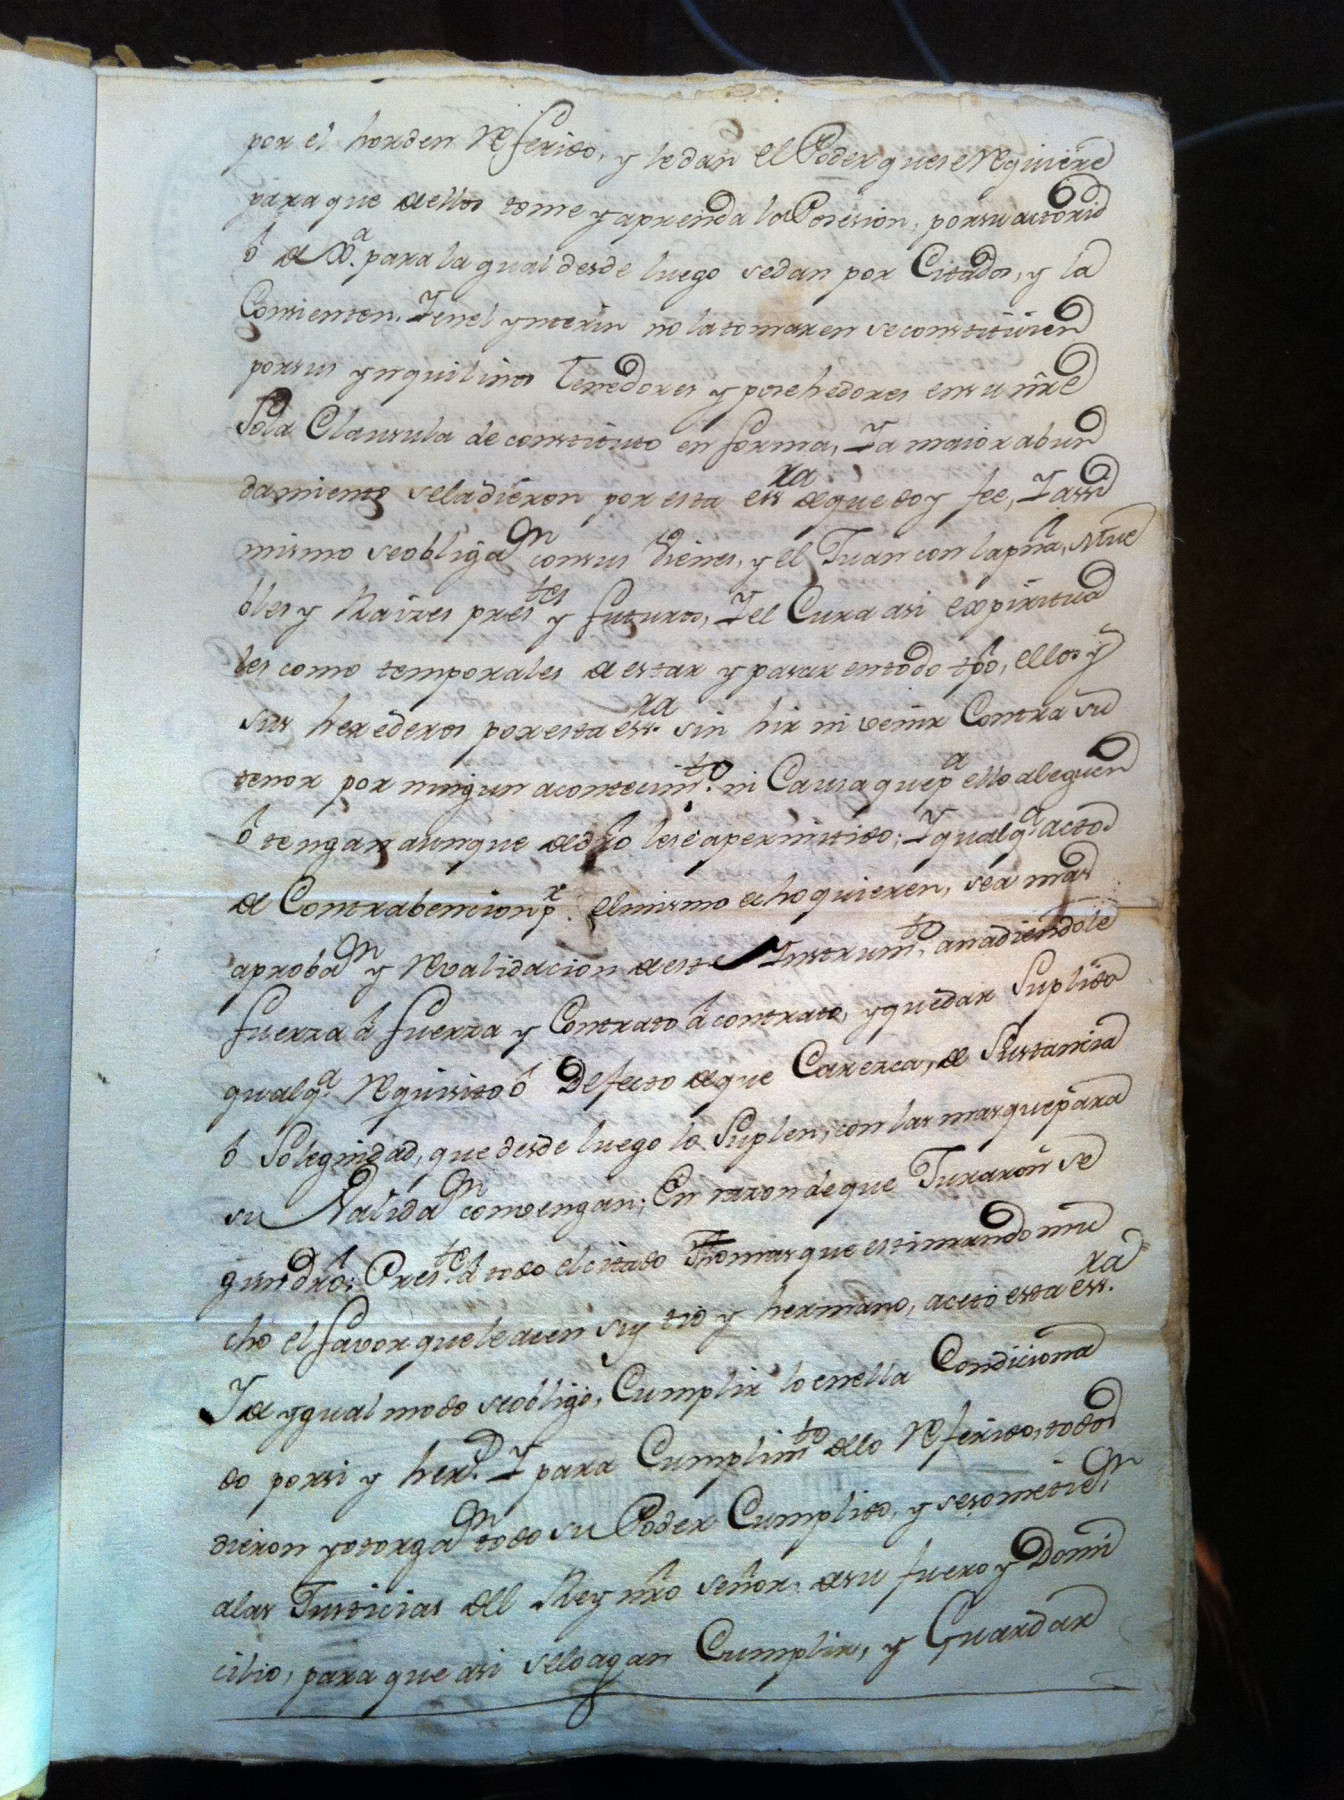 por el horden Referido, y le dan el Poder que se Requiere
para que dellos tome y aprenda la Posesion, por su actorid
ô de Xª. para la qual desde luego se dan por Citados, y la
Consienten. Y en el ynterin no la tomaren se constituien
por sus ynquilinos Tenedores y posehedores en su nr̃e
Sola Clausula de constituto en forma, Y a maior abun
damiento se la dieron por esta essra de que doy fee, Y assi
mismo se obligaⁿ con sus Vienes, y el Juan con la pñã, Mue
bles y Raizes prestes y futuros, Y el Cura asi expiritua
les como temporales de estar y pasar en todo tp̃o, ellos y
sus herederos por esta essra. sin hir ni venir Contra su
tenor por ningun acontecimto. ni Causa que pª ello aleguen
ô tengan aunque de dr̃o les sea permitido; Y qualqª actos
de Contrabencion pr. el mismo echo quieren, sea mas
aprobaⁿ y Revalidacion de este Instrumto. anadiendole
fuerza â fuerza y Contrato â contrato, y quedar Suplido
qualqª. Requisito ô Defecto de que Carezca, de Sustancia
ô Solegnidad, que desde luego lo Suplen, con las mas que para
su Validaⁿ convengan; En razon de que Juraron se
gun dr̃o; Preste. â todo el citado Thomas que estimando mu
cho el favor que le acen su tio y hermano, aceto esta essra.
Y de ygual modo se obligò, Cumplir lo en ella Condiciona
do por si y herd. Y para Cumplimto dello Referido, todos
dieron y otorgaⁿ todo su Poder Cumplido, y se sometieⁿ
a las Justicias del Rey nr̃o señor, de su fuero y Domi
cilio, para que asi se lo agan Cumplir, y Guardar